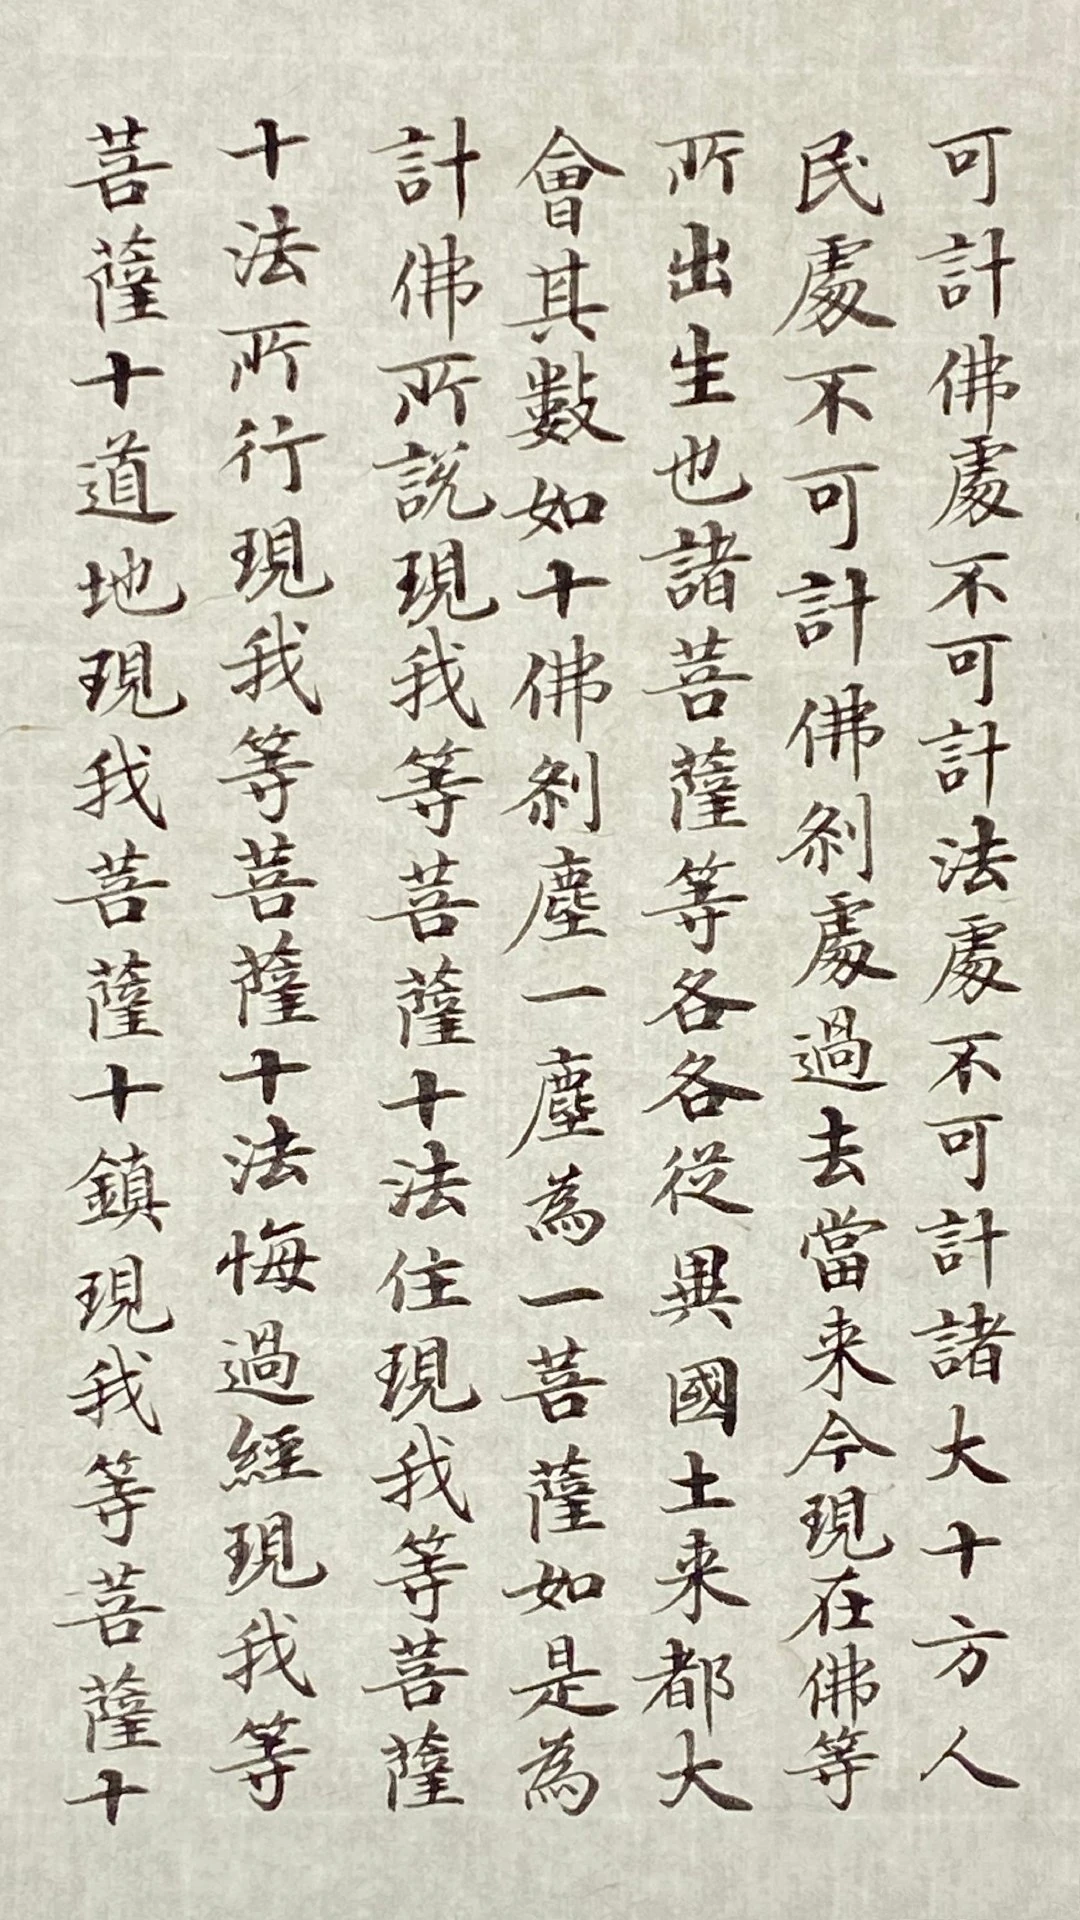 可計佛處不可計法處不可計諸大十方人
民處不可計佛剎處過去當来今現在佛等
所出生也諸菩薩等各各從異國土来都大
會其數如十佛剎塵一塵為一菩薩如是為
計佛所説現我等菩薩十法住現我等菩薩
十法所行現我等菩薩十法悔過經現我等
菩薩十道地現我菩薩十鎮現我等菩薩十